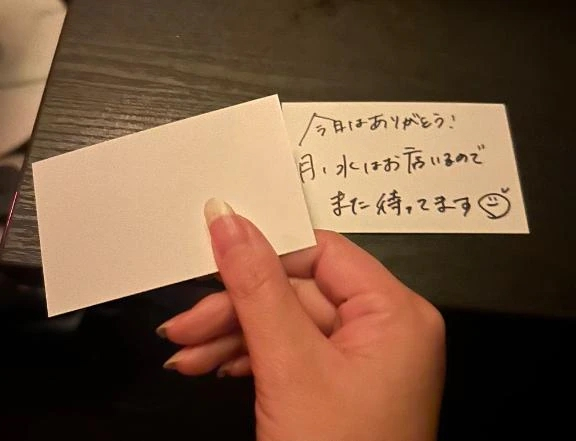 今日はありがとう!
月、水はお店いるので
また待ってます